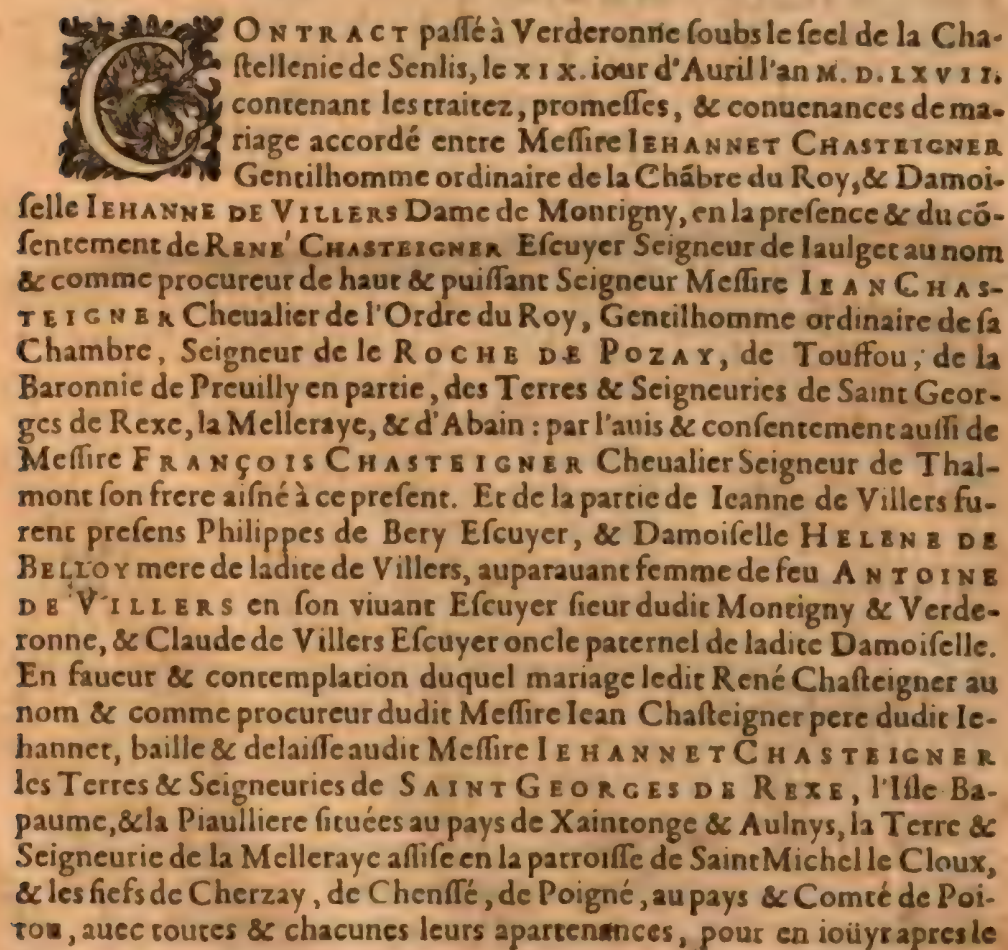 CONTRACT passé à Verderonne soubs le seel de la Cha-
stellenie de Senlis, le XIX. iour d'Auril l'an M. D. LXVII.
contenant les traitez, promesses, & conuenances de ma-
riage accordé entre Messire IEHANNET CHASTEIGNER
Gentilhomme ordinaire de la Chãbre du Roy, & Damoi-
selle IEHANNE DE VILLERS Dame de Montigny, en la presence & du cõ-
sentement de RENE' CHASTEIGNER Escuyer Seigneur de Iaulget au nom
& comme procureur de haut & puissant Seigneur Messire IEAN CHAS-
TEIGNER Cheualier de l'Ordre du Roy, Gentilhomme ordinaire de sa
Chambre, Seigneur de le ROCHE DE POZAY, de Touffou, de la
Baronnie de Preuilly en partie, des Terres & Seigneuries de Saint Geor-
ges de Rexe, la Melleraye, & d'Abain : par l'auis & consentement aussi de
Messire FRANÇOIS CHASTEIGNER Cheualier Seigneur de Thal-
mont son frere aisné à ce present. Et de la partie de Ieanne de Villers fu-
rent presens Philippes de Bery Escuyer, & Damoiselle HELENE DE
BELLOY mere de ladite de Villers, auparauant femme de feu ANTOINE
DE VILLERS en son viuant Escuyer sieur dudit Montigny & Verde-
ronne, & Claude de Villers Escuyer oncle paternel de ladite Damoiselle.
En faueur & contemplation duquel mariage ledit René Chasteigner au
nom & comme procureur dudit Messire Iean Chasteigner pere dudit Ie-
hannet, baille & delaisse audit Messire IEHANNET CHASTEIGNER
les Terres & Seigneuries de SAINT GEORGES DE REXE, l'Isle Ba-
paume, & la Piaulliere situées au pays de Xaintonge & Aulnys, la Terre &
Seigneurie de la Melleraye assise en la parroisse de Saint Michel le Cloux,
& les fiefs de Cherzay, de Chenssé, de Poigné, au pays & Comté de Poi-
tou, auec toutes & chacunes leurs apartenances, pour en ioüyr apres le